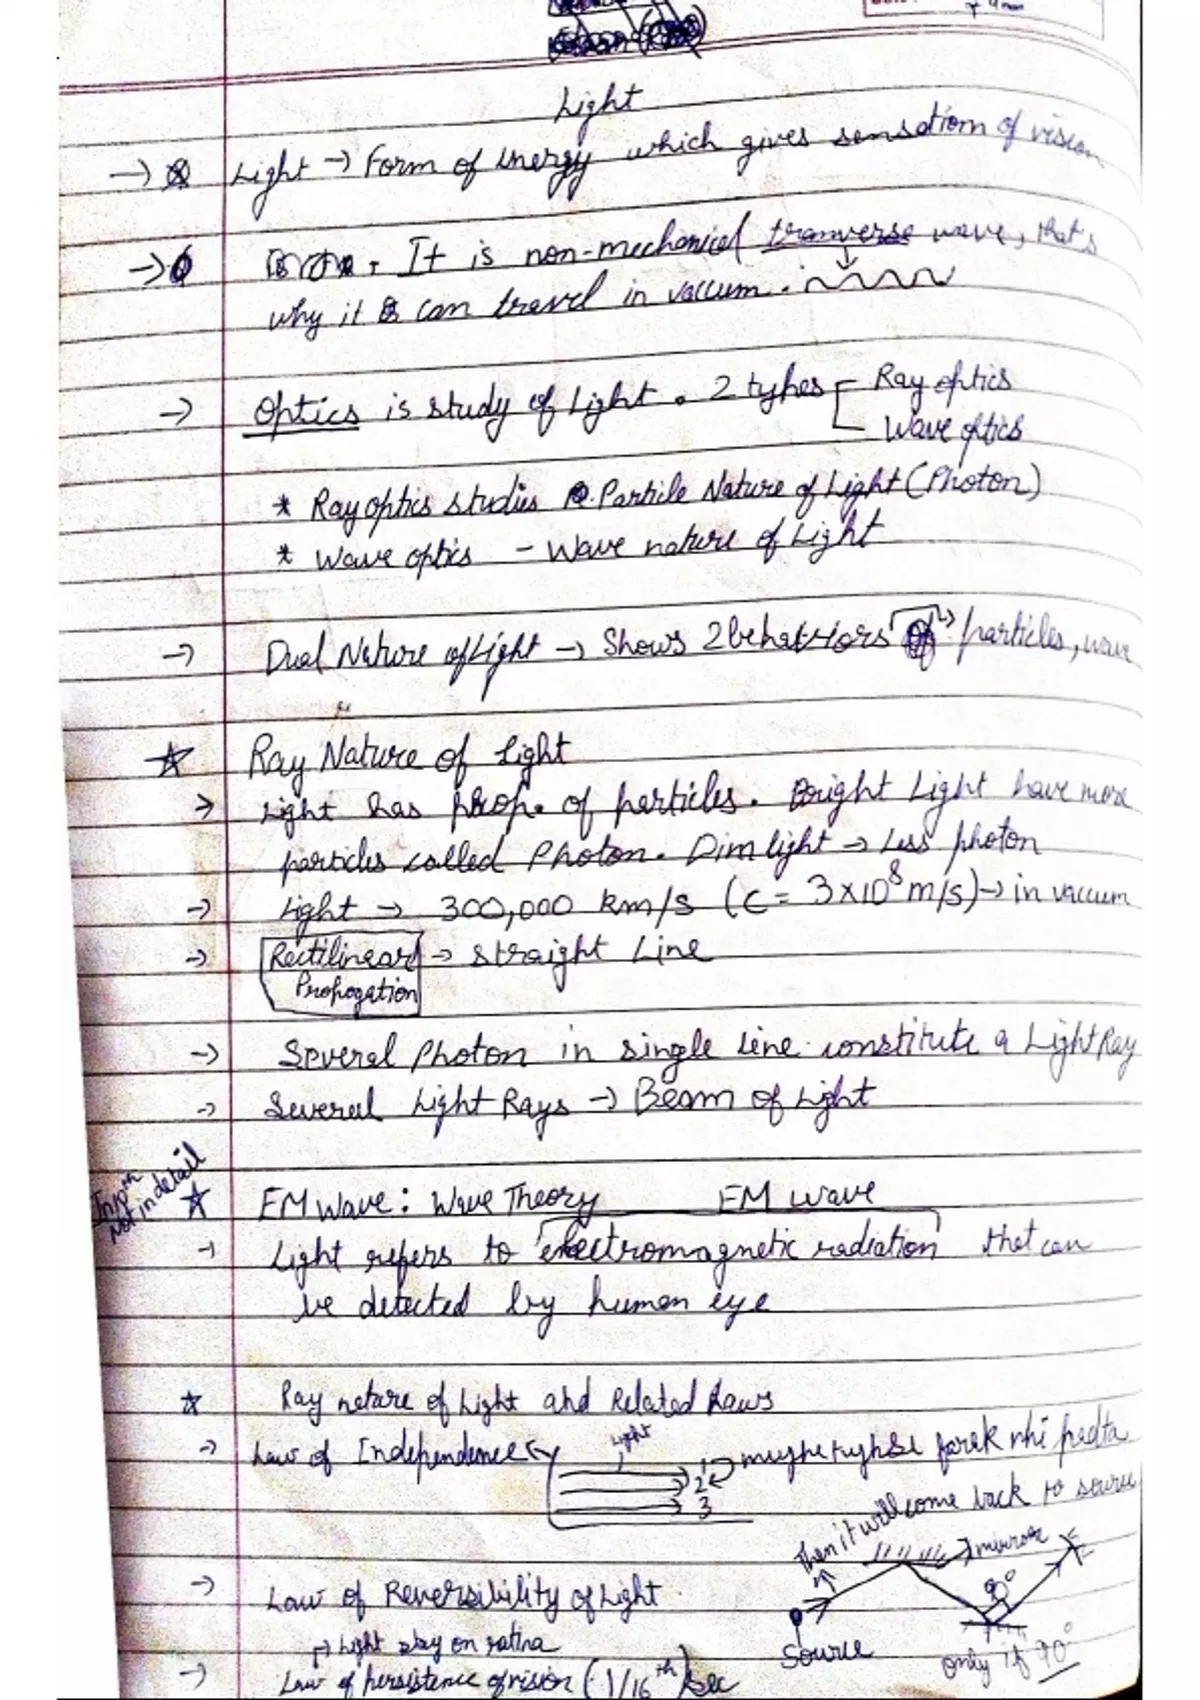 Light
→ Light → Form of energy which gives sensation of vision
→ It is non-mechanical tranverse wave, that's
why it can travel in vaccum.
→ Optics is study of Light. 2 types Ray optics
Wave optics
* Ray optics studies Particle Nature of Light (Photon)
* Wave optics - Wave nature of Light
→ Dual Nature of Light → Shows 2 behaviors particles, wave
☆ Ray Nature of Light
→ Light has prop. of particles. Bright Light have more
particles called Photon. Dim light → Less photon
→ Light → 300,000 km/s (c = 3×10⁸ m/s) → in vaccum
→ Rectilinear → straight Line
Propogation
→ Several Photon in single line constitute a Light Ray
→ Several Light Rays → Beam of Light
In 10th
Not in detail
☆ EM Wave: Wave Theory EM wave
→ Light refers to electromagnetic radiation that can
be detected by human eye
☆ Ray nature of Light and Related Laws
→ Law of Independence Light 1 2 3 mujhe tujhse farak nhi padta
Then it will come back to source
mirror
→ Law of Reversibility of Light
90°
Source
only if 90°
Light stay on ratina
→ Law of persistence of vision (1/16th) sec